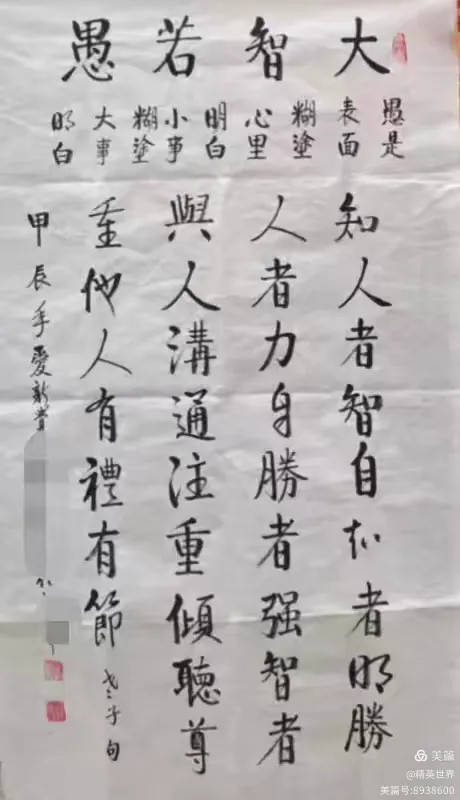 大智若愚
愚是
表面
糊塗
心里
明白
小事
糊塗
大事
明白
知人者智自知者明勝
人者力自勝者强智者
與人溝通注重傾聽尊
重他人有禮有節 老子句
甲辰年愛新覺
美篇
@精英世界
美篇号:8938600